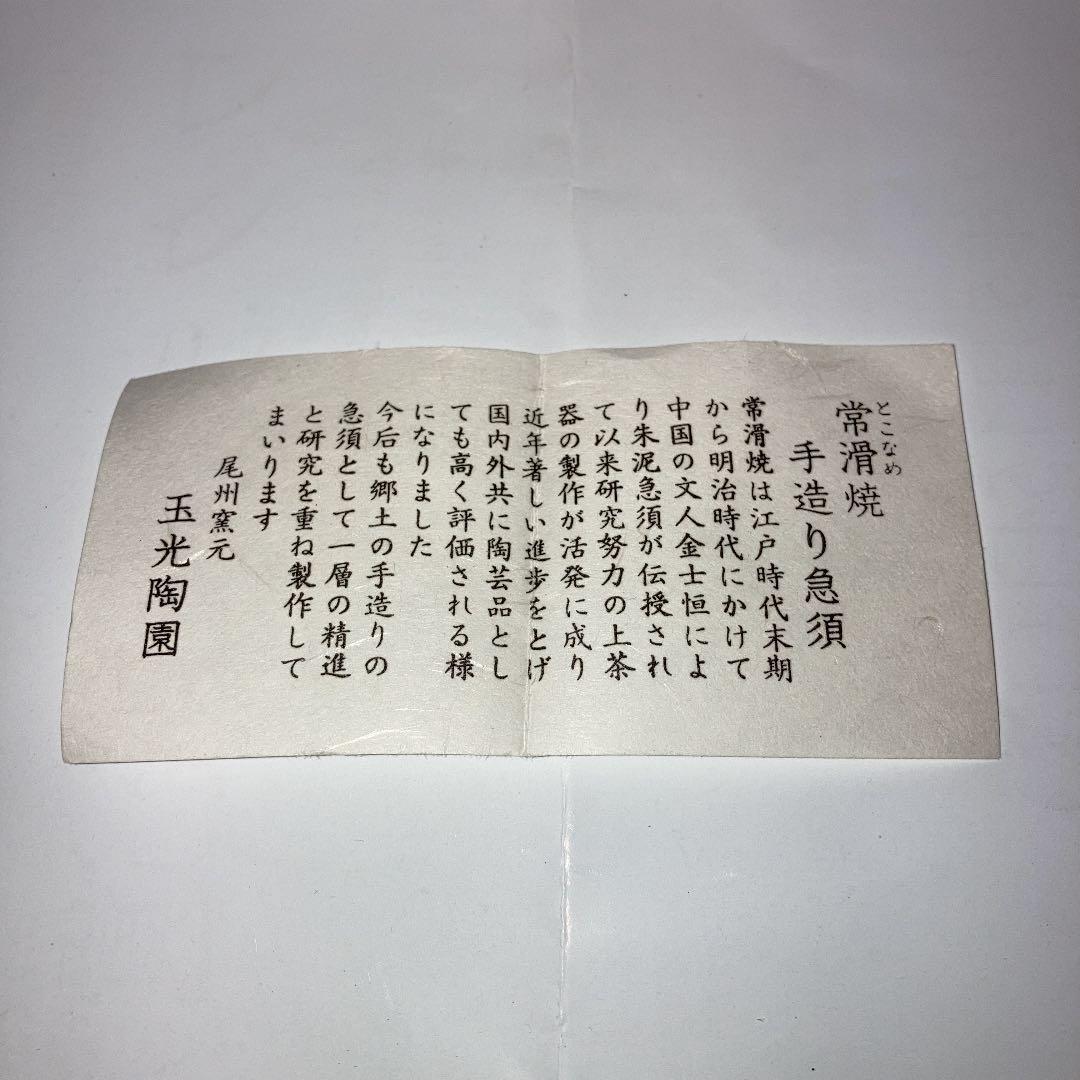 とこなめ
常滑焼
手造り急須
常滑焼は江戸時代末期
から明治時代にかけて
中国の文人金士恒によ
り朱泥急須が伝授され
て以来研究努力の上茶
器の製作が活発に成り
近年著しい進歩をとげ
国内外共に陶芸品とし
ても高く評価される様
になりました
今后も郷土の手造りの
急須として一層の精進
と研究を重ね製作して
まいります
尾州窯元
玉光陶園